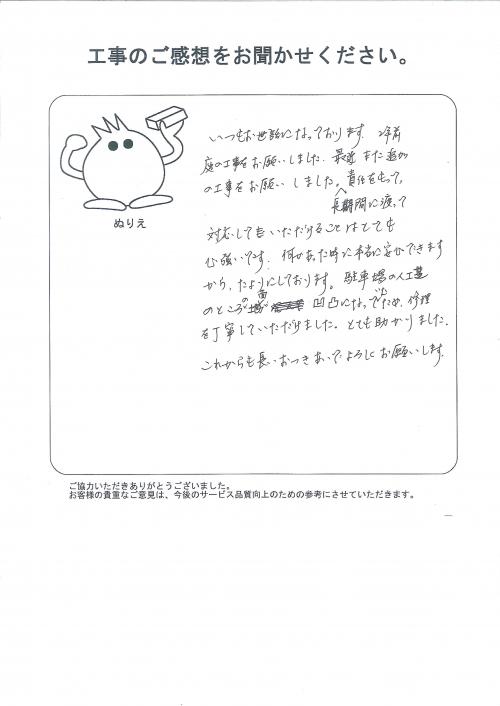 工事のご感想をお聞かせください。
いつもお世話になっております。2年前
庭の工事をお願いしました。最近また追加
の工事をお願いしました。責任をもって、
長期間に渡って
対応していただけることはとても
心強いです。何かあった時に本当に安心できます
から、たよりにしております。駐車場の人工芝
のところの面が凹凸になってしため、修理
を丁寧していただけました。とても助かりました。
これからも長いおつきあいでよろしくお願いします。
ぬりえ
ご協力いただきありがとうございました。
お客様の貴重なご意見は、今後のサービス品質向上のための参考にさせていただきます。